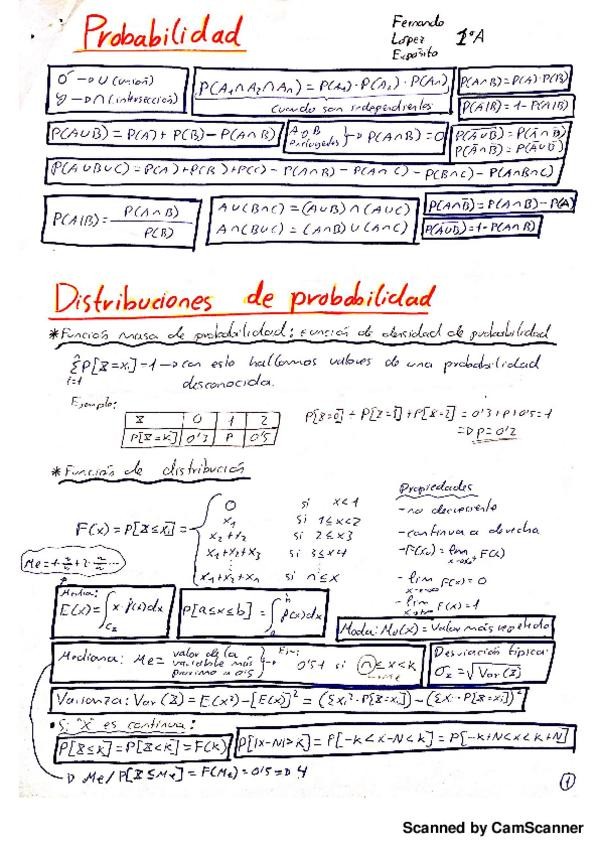 Probabilidad
Fernando
López
Expósito
1ºA
O → U (unión)
y → ∩ (intersección)
P(A₁∩A₂∩Aₙ) = P(A₁)·P(A₂)·P(Aₙ)
cuando son independientes
P(A∩B)=P(A)·P(B)
P(A|B)=1-P(A|B)
P(A∪B) = P(A) + P(B) - P(A∩B)
A ∩ B
P(A∩B)=0
P(A̅∪B̅) = P(A̅∩B̅)
P(A̅∩B̅) = P(A̅∪B̅)
P(A∪B∪C) = P(A)+P(B)+P(C) - P(A∩B) - P(A∩C) - P(B∩C) - P(A∩B∩C)
P(A|B) = P(A∩B) / P(B)
A∪(B∩C) = (A∪B)∩(A∪C)
A∩(B∪C) = (A∩B)∪(A∩C)
P(A∩B̅) = P(A∩B) - P(A)
P(A̅∪B̅)=1-P(A∩B)
Distribuciones de probabilidad
*Función masa de probabilidad: Función de densidad de probabilidad
Σ P[X=xᵢ]=1 → con esto hallamos valores de una probabilidad
i=1
desconocida.
Ejemplo:
X 0 1 2
P[X=K] 0'3 P 0'5
P[X=0] + P[X=1] + P[X=2] = 0'3+P+0'5=1
=D P=0'2
*Función de distribución
F(x) = P[X≤xᵢ] =
0 si x<1
x₁ si 1≤x<2
x₁+x₂ si 2≤x<3
x₁+x₂+x₃ si 3≤x<4
x₁+x₂+xₙ si n≤x
Propiedades
- no decreciente
- continua a derecha
- F(x₀) = lim F(x)
- lim F(x)=0
- lim F(x)=1
Media:
E(x)=∫ x·f(x)dx
P[a≤x≤b] = ∫ f(x)dx
Moda: Mo(x) = Valor más repetido
Mediana: Me = valor de la variable más próximo a 0'5
Ej:
0'51 si n≤x<k
→ Me
Desviación típica:
σx = √Var(X)
Varianza: Var(X) = E(x²) - [E(x)]² = (Σxᵢ²·P[X=xᵢ]) - (Σxᵢ·P[X=xᵢ])²
• Si "X" es continua:
P[X≤K] = P[X<K] = F(K)
P[|X-N|>K] = P[-K<X-N<K] = P[-K+N<X<K+N]
Me / P[X≤Me] = F(Me) = 0'5 =D 4
1
Scanned by CamScanner